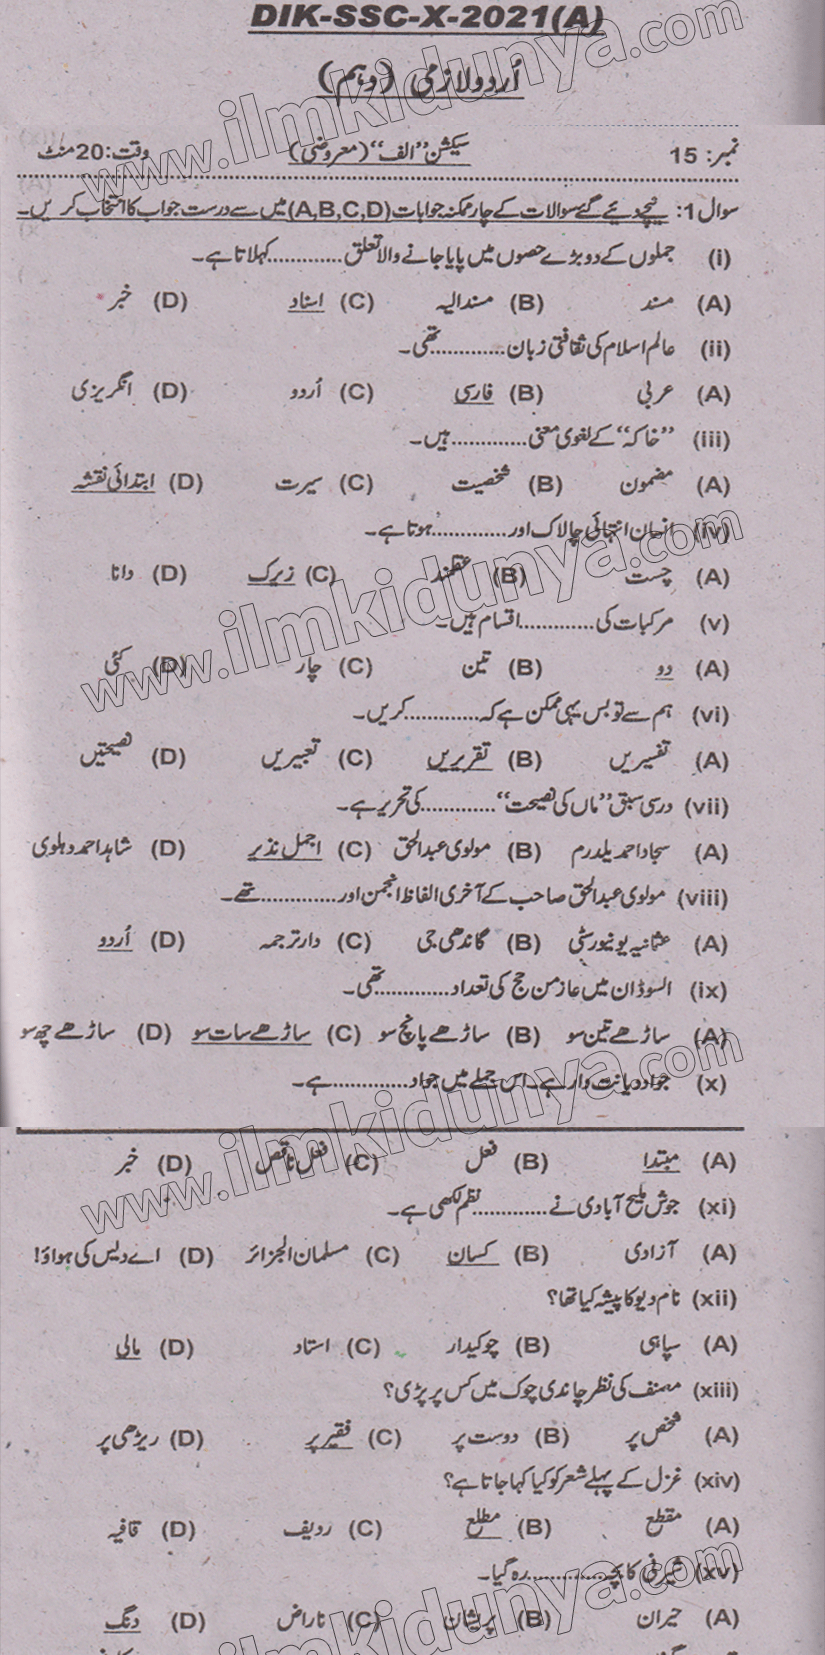 DIK-SSC-X-2021(A)
اُردو لازمی (دہم)
نمبر: 15 سیکشن "الف" (معروضی) وقت: 20 منٹ
سوال 1: نیچے دیئے گئے سوالات کے چار ممکنہ جوابات (A,B,C,D) میں سے درست جواب کا انتخاب کریں۔
(i) جملوں کے دو بڑے حصوں میں پایا جانے والا تعلق ............ کہلاتا ہے۔
(A) مسند (B) مسندالیہ (C) اسناد (D) خبر
(ii) عالم اسلام کی ثقافتی زبان ............ تھی۔
(A) عربی (B) فارسی (C) اُردو (D) انگریزی
(iii) "خاکہ" کے لغوی معنی ............ ہیں۔
(A) مضمون (B) شخصیت (C) سیرت (D) ابتدائی نقشہ
(iv) انسان انتہائی چالاک اور ............ ہوتا ہے۔
(A) چست (B) عقلمند (C) زیرک (D) دانا
(v) مرکبات کی ............ اقسام ہیں۔
(A) دو (B) تین (C) چار (D) کئی
(vi) ہم سے تو بس یہی ممکن ہے کہ ............ کریں۔
(A) تفسیریں (B) تقریریں (C) تعبیریں (D) نصیحتیں
(vii) درسی سبق "ماں کی نصیحت" ............ کی تحریر ہے۔
(A) سجاد احمد یلدرم (B) مولوی عبدالحق (C) اجمل نذیر (D) شاہد احمد دہلوی
(viii) مولوی عبدالحق صاحب کے آخری الفاظ انجمن اور ............ تھے۔
(A) عثمانیہ یونیورسٹی (B) گاندھی جی (C) دارترجمہ (D) اُردو
(ix) السوڈان میں عازمن حج کی تعداد ............ تھی۔
(A) ساڑھے تین سو (B) ساڑھے پانچ سو (C) ساڑھے سات سو (D) ساڑھے چھ سو
(x) جواد دیانت دار ہے۔ اس جملے میں جواد ............ ہے۔
(A) مبتدا (B) فعل (C) فعل ناقص (D) خبر
(xi) جوش ملیح آبادی نے ............ نظم لکھی ہے۔
(A) آزادی (B) کسان (C) مسلمان الجزائر (D) اے دیس کی ہواؤ!
(xii) نام دیو کا پیشہ کیا تھا؟
(A) سپاہی (B) چوکیدار (C) استاد (D) مالی
(xiii) مصنف کی نظر چاندی چوک میں کس پر پڑی؟
(A) شخص پر (B) دوست پر (C) فقیر پر (D) ریڑھی پر
(xiv) غزل کے پہلے شعر کو کیا کہا جاتا ہے؟
(A) مقطع (B) مطلع (C) ردیف (D) قافیہ
(xv) شیرنی کا بچہ ............ رہ گیا۔
(A) حیران (B) پریشان (C) ناراض (D) دنگ
www.ilmkidunya.com
www.ilmkidunya.com
www.ilmkidunya.com